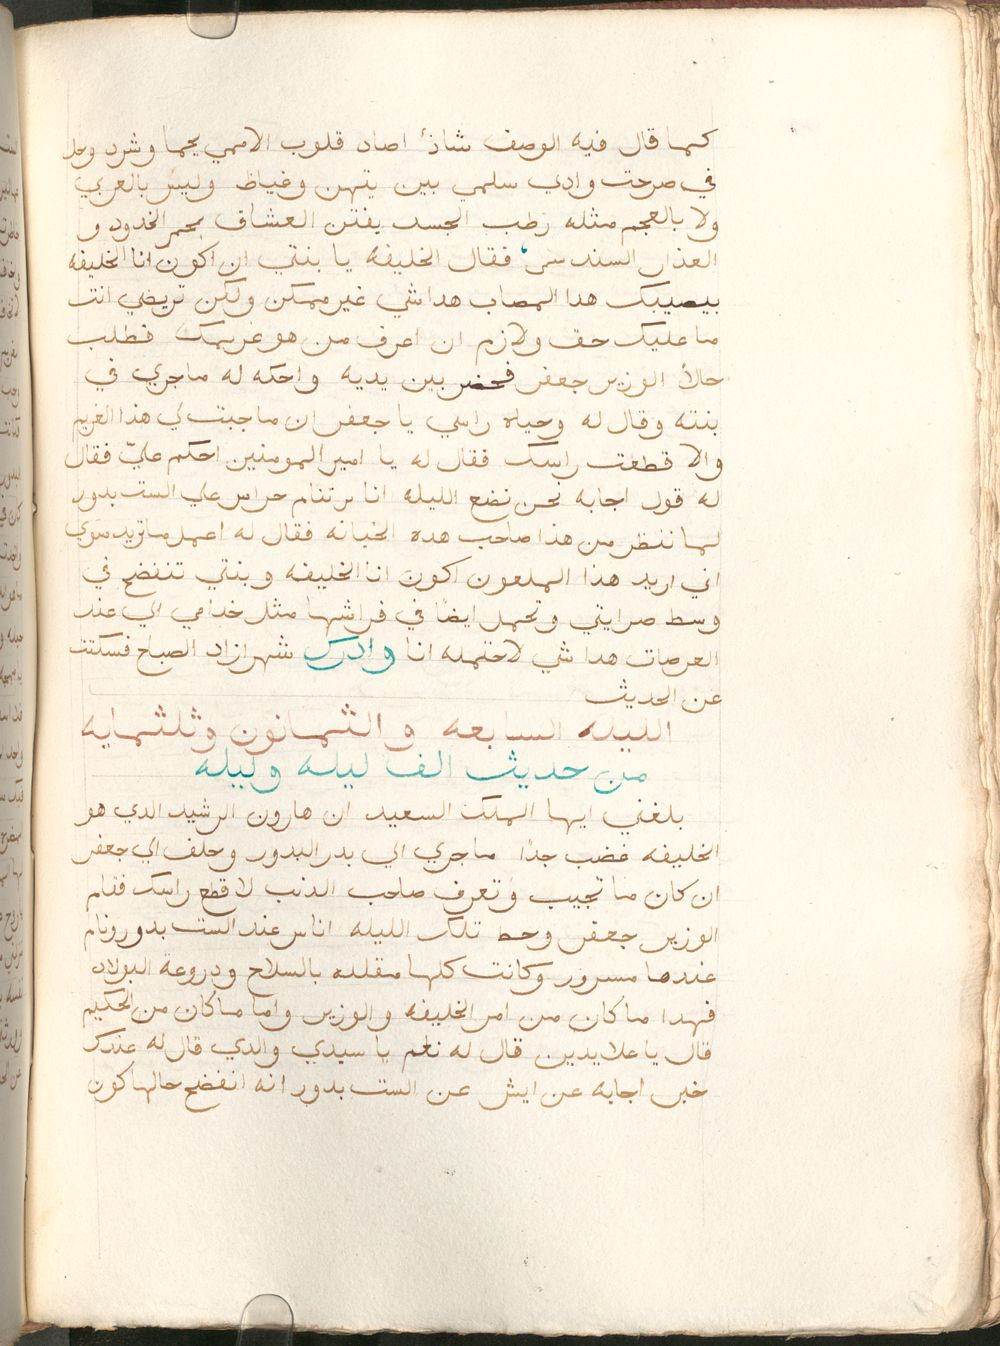 كما قال فيه الوصف شادٔ اصاد قلوب الاممي يحما وشرد وحل
في صرحت وادي سلمي بين يتهن وغياظ وليس بالعربي
ولا بالعجم مثله رطب الجسد يفتن العشاق بحمر الخدود و
العذار السندسى فقال الخليفه يا بنتي ان اكون انا الخليفه
بيصيبك هدا المصاب هدا شي غير ممكن ولكن تريضي انت
ما عليك حق ولازم ان اعرف من هو غريمك فطلب
حالاً الوزير جعفر فحضر بين يديه واحكه له ماجري في
بنته وقال له وحياه راسي يا جعفر ان ما جبت لي هذا الغريم
والا قطعت راسك فقال له يا امير المومنين احكم عليّ فقال
له قول اجابه نحن نضع الليله اناس تنام حراس علي الست بدور
لما ننظر من هذا صاحب هده الخيانه فقال له اعمل ما تريد سوي
اني اريد هذا الملعون اكون انا الخليفه وبنتي تنفضح في
وسط صرايتي وتحمل ايضاً في فراشها مثل خدامي الي عند
العرصات هدا شي لا حتمله انا وادرك شهرازاد الصباح فسكتت
عن الحديث
الليله السابعه والثمانون وثلثمايه
من حديث الف ليله وليله
بلغني ايها الملك السعيد ان هارون الرشيد الدي هو
الخليفه غضب جدًا ماجري الي بدر البدور وحلف الي جعفر
ان كان ما تجيب وتعرف صاحب الدنب لاقطع راسك فقام
الوزير جعفر وحط تلك الليله اناس عند الست بدور ونام
عندها مسرور وكانت كلها مقلده بالسلاح ودروعة البولاد
فهدا ما كان من امر الخليفه والوزير واما ما كان من الحكيم
قال يا علايدين قال له نعم يا سيدي والدي قال له عندك
خبر اجابه عن ايش عن الست بدور انه انفضح حالها كون